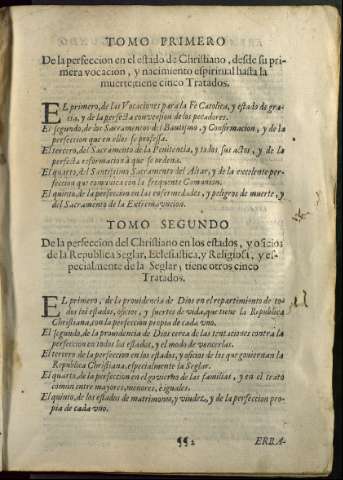 TOMO PRIMERO
De la perfeccion en el estado de Christiano, desde su pri-
mera vocacion, y nacimiento espiritual hasta la
muerte; tiene cinco Tratados.
EL primero, de las Vocaciones para la Fe Catolica, y estado de gra-
cia, y de la perfecta conversion de los pecadores.
El segundo, de los Sacramentos del Bautismo, y Confirmacion, y de la
perfeccion que en ellos se professa.
El tercero, del Sacramento de la Penitencia, y todos sus actos, y de la
perfecta reformacion à que se ordena.
El quarto, del Santissimo Sacramento del Altar, y de la excelente per-
feccion que comunica con la frequente Comunion.
El quinto, de la perfeccion en las enfermedades, y peligros de muerte, y
del Sacramento de la Extremauncion.
TOMO SEGUNDO
De la perfeccion del Christiano en los estados, y oficios
de la Republica Seglar, Eclesiastica, y Religiosa, y es-
pecialmente de la Seglar; tiene otros cinco
Tratados.
EL primero, de la providencia de Dios en el repartimiento de to-
dos los estados, oficios, y suertes de vida, que tiene la Republica
Christiana, con la perfeccion propia de cada uno.
El segundo, de la providencia de Dios cerca de las tentaciones contra la
perfeccion en todos los estados, y el modo de vencerlas.
El tercero de la perfeccion en los estados, y oficios de los que goviernan la
Republica Christiana, especialmente la Seglar.
El quarto, de la perfeccion en el govierno de las familias, y en el trato
comun entre mayores, menores, è iguales.
El quinto, de los estados de matrimonio, y viudez, y de la perfeccion pro-
pia de cada uno.
¶¶2 ERRA-